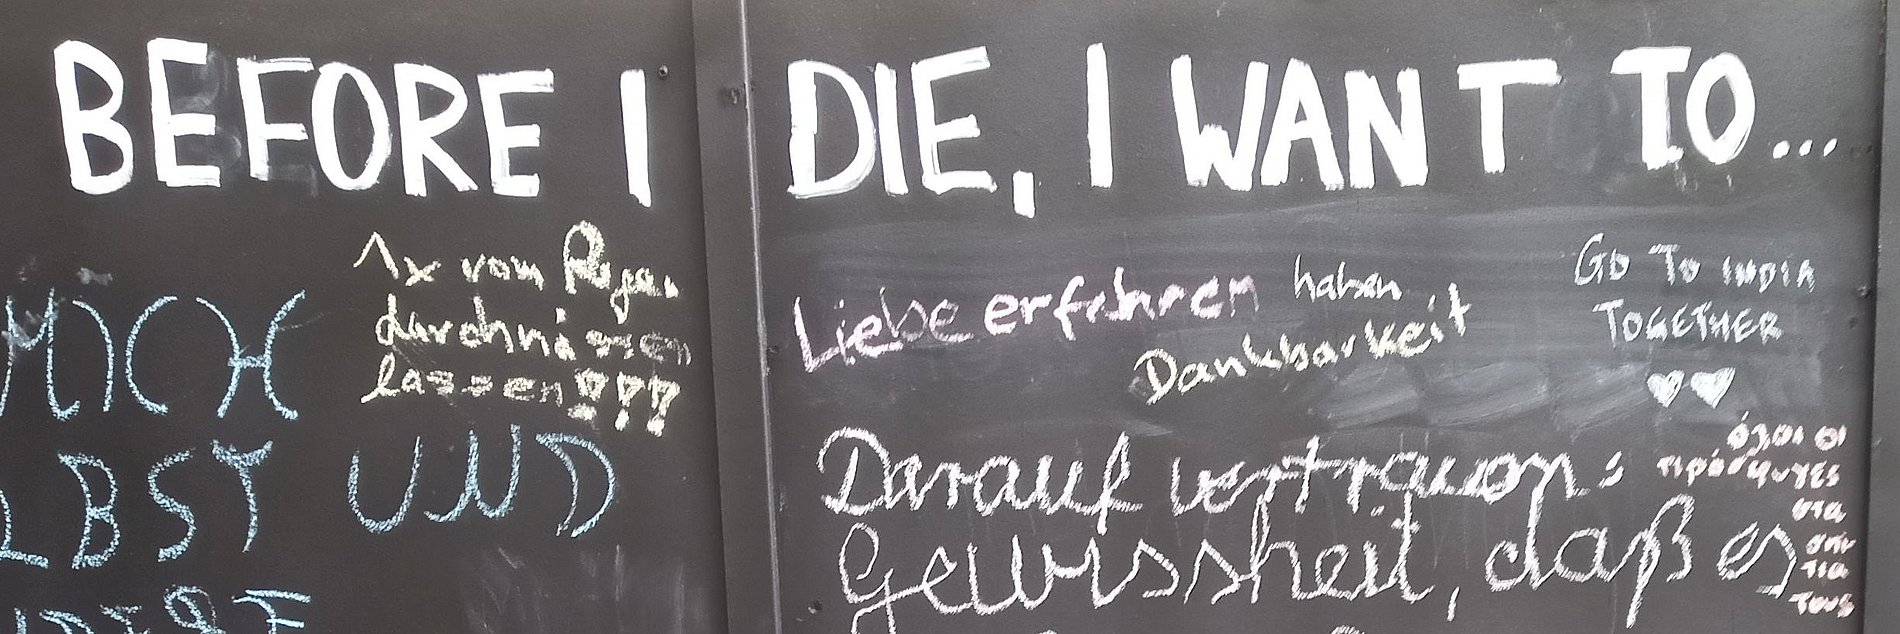 BEFORE I DIE, I WANT TO...
1x vom Regen
durchnässen
lassen!!!
MICH
LBST UND
Liebe erfahren haben
Dankbarkeit
GO TO INDIA
TOGETHER
Darauf vertrauen:
Gewissheit, daß es
όλοι οι
πρόσφυγες
στα
σπί
τια
τους